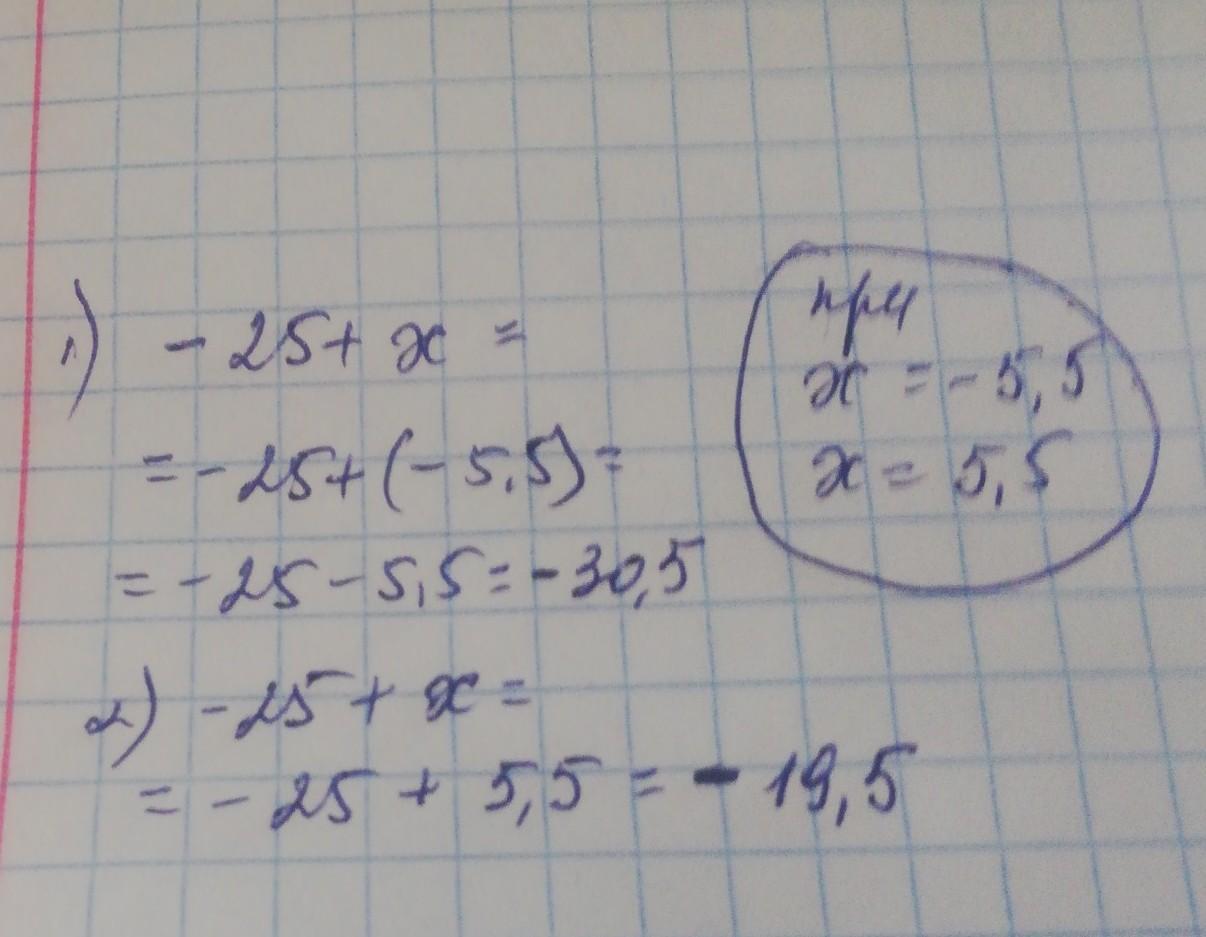 1) - 25 + x =
= - 25 + (- 5,5) =
= - 25 - 5,5 = - 30,5
при
x = - 5,5
x = 5,5
2) - 25 + x =
= - 25 + 5,5 = - 19,5